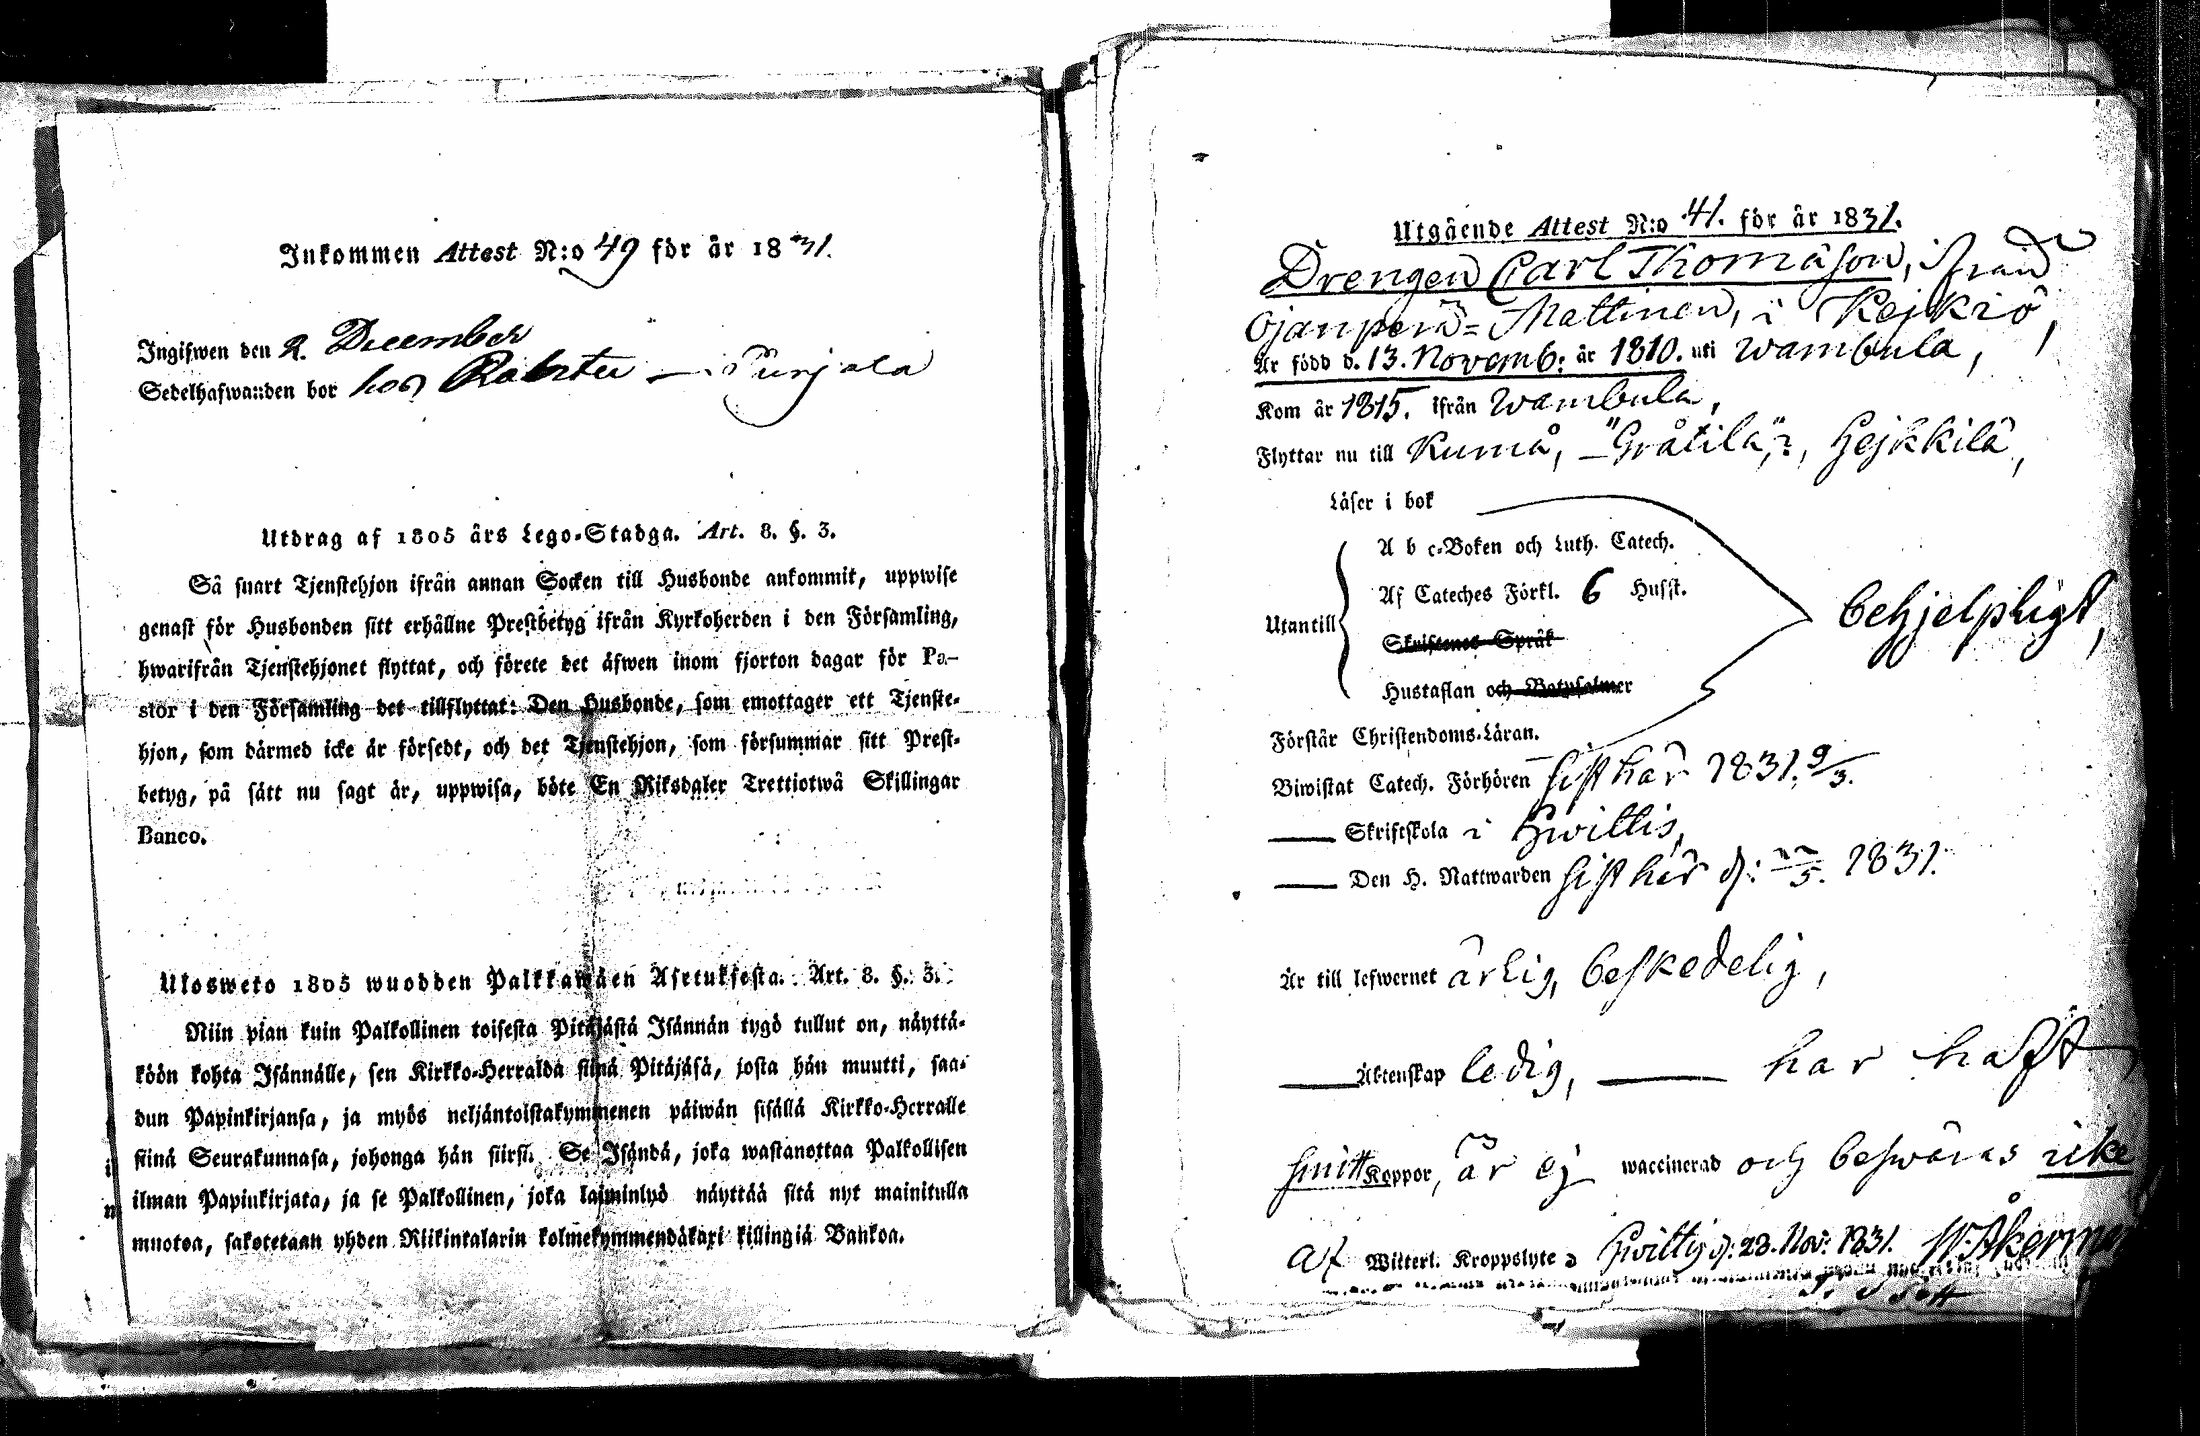 Inkommen Attest N:o 49 för år 1831.
Ingifwen den 2. December
Sedelhafwanden bor hos
Utdrag af 1805 års Lego-Stadga. Art. 8. §. 3.
Så snart Tjenstehjon ifrån annan Socken till Husbonde ankommit, uppwise
genast för Husbonden sitt erhållne Prestbetyg ifrån Kyrkoherden i den Församling,
hwarifrån Tjenstehjonet flyttat, och förete det äfwen inom fjorton dagar för Pa-
stor i den Församling det tillflyttat: Den Husbonde, som emottager ett Tjenste-
hjon, som dårmed icke är försedt, och det Tjenstehjon, som försummar sitt Prest-
betyg, på sätt nu sagt är, uppwisa, böte En Riksdaler Trettiotwå Skillingar
Banco.
Ulosweto 1805 wuodden Palkkawäen Asetuksesta. Art. 8. §. 3.
Niin pian kuin Palkollinen toisesta Pitäjästä Isännän tygö tullut on, näyttä-
köön kohta Isännälle, sen Kirkko-Herralda siinä Pitäjäsä, josta hän muutti, saa-
dun Papinkirjansa, ja myös neljäntoistakymmenen päiwän sisällä Kirkko-Herralle
siinä Seurakunnasa, johonga hän siirsi. Se Isändä, joka wastanottaa Palkollisen
ilman Papinkirjata, ja se Palkollinen, joka laiminlyö näyttää sitä nyt mainitulla
muotoa, sakotetaan yhden Riikintalarin kolmekymmendäkaxi killingiä Bankoa.
Utgående Attest N:o 41. för år 1831.
Drengen Carl Thomåson, ifrån
Ojanperä=Mattinen, i Kejkiö,
Är född d. 13. Novemb: år 1810. uti Wambula,
Kom år 1815. ifrån Wambula,
Flyttar nu till Kumå, "Gråtila", Hejkkilä,
Läser i bok
A b c-Boken och Luth. Catech.
Af Cateches Förkl. 6 Husst.
Utantill behjelpligt,
Skriftenes Språk
Hustaflan och Botpsalmer
Förstår Christendoms-Läran.
Biwistat Catech. Förhören sist här 1831. 9/3.
Skriftskola i Hwittis,
Den H. Nattwarden sist här d: 22/5. 1831.
Är till lefwernet ärlig, beskedelig,
Äktenskap ledig, har haft
smittkoppor, är ej waccinerad och beswäras icke
af Witterl. Kroppslyte Hwittis d: 28. Nov: 1831. W. Åkerman